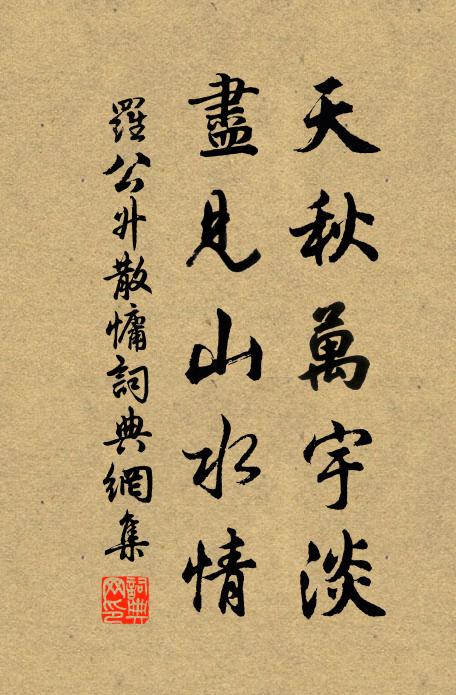 天秋萬宇淡
盡見山水情
羅公升散慵詞典網集
詞典
网印